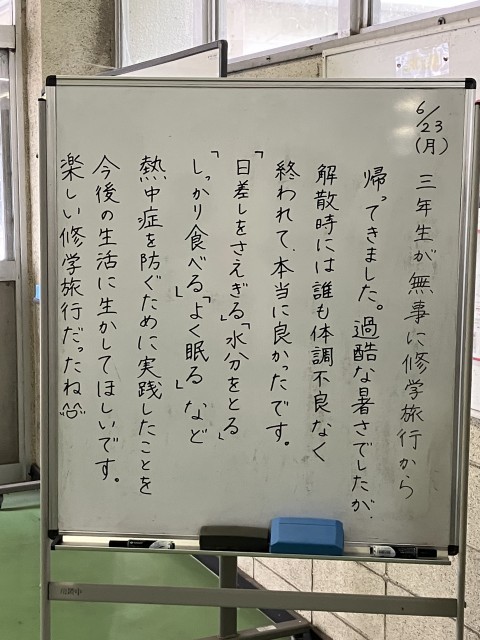 6/23
(月)
三年生が無事に修学旅行から
帰ってきました。過酷な暑さでしたが、
解散時には誰も体調不良なく
終われて、本当に良かったです。
「日差しをさえぎる」「水分をとる」
「しっかり食べる」「よく眠る」など
熱中症を防ぐために実践したことを
今後の生活に生かしてほしいです。
楽しい修学旅行だったね